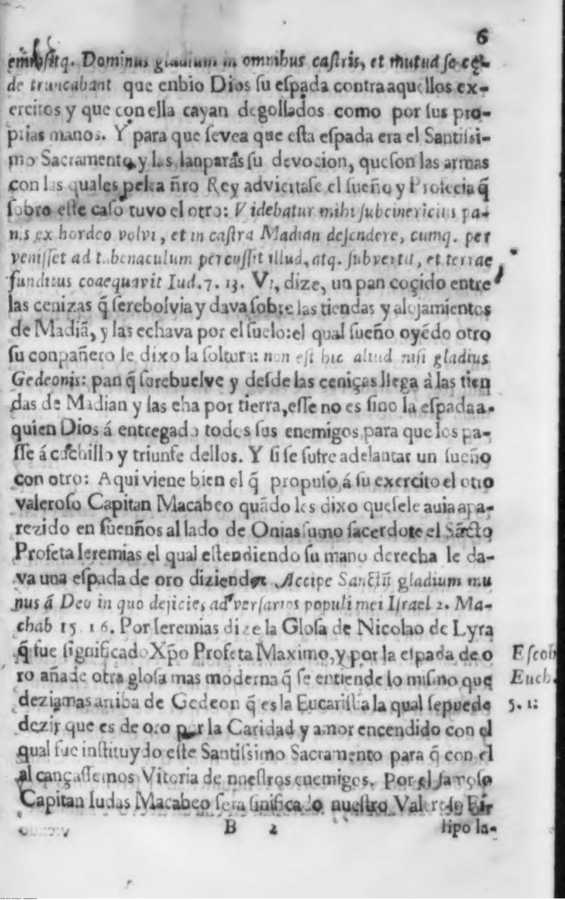 6
Dominus gladium in omnibus castris, et mutua se cę-
de truncabant que enbio Dios su espada contra aquellos ex-
ercitos y que con ella cayan degollados como por sus pro-
prias manos. Y para que se vea que esta espada era el Santissi-
mo Sacramento, y las lanparas su devocion, que son las armas
con las quales pelea ñro Rey adviertase el sueño y Profecia q̃
sobre este caso tuvo el otro: Videbatur mihi subcinericius pa-
nis ex hordeo volvi, et in castra Madian descendere, cumq. per
venisset ad tabenaculum percussit illud, atq. subvertit, et terrae
funditus coaequavit Iud. 7. 13. Vi, dize, un pan coçido entre
las cenizas q̃ se rebolvia y dava sobre las tiendas y alojamientos
de Madiã, y las echava por el suelo: el qual sueño oyẽdo otro
su conpañero le dixo la soltura: non est hic aliud nisi gladius
Gedeonis: pan q̃ se rebuelve y desde las ceniças llega à las tien
das de Madian y las eha por tierra, esse no es sino la espada a-
quien Dios á entregado todos sus enemigos para que los pa-
sse á cuchillo y triunfe dellos. Y si se sufre adelantar un sueño
con otro: Aqui viene bien el q̃ propuso á su exercito el otro
valeroso Capitan Macabeo quãdo les dixo que se le avia apa-
rezido en suenños al lado de Onias sumo sacerdote el Sãcto
Profeta Ieremias el qual estendiendo su mano derecha le da-
va una espada de oro diziendo: Accipe Sanctũ gladium mu
nus á Deo in quo dejicies adversarios populi mei Israel 2. Ma-
chab 15. 16. Por Ieremias dize la Glosa de Nicolao de Lyra
q̃ fue significado Xp̃o Profeta Maximo, y por la espada de o
ro añade otra glosa mas moderna q̃ se entiende lo mismo que
deziamas arriba de Gedeon q̃ es la Eucaristia la qual se puede
dezir que es de oro por la Caridad y amor encendido con el
qual fue instituydo este Santissimo Sacramento para q̃ con el
alcançassemos Vitoria de nuestros enemigos. Por el famoso
Capitan Iudas Macabeo sera sinificado nuestro Valeroso Fir
B 2 lipo la-
Escob
Euch.
5. 1: